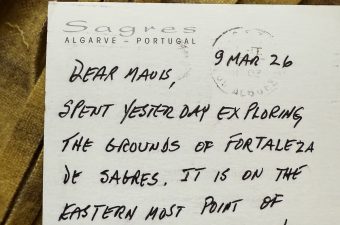 Sagres
ALGARVE – PORTUGAL
9 MAR 26
DEAR MAVIS,
SPENT YESTERDAY EXPLORING
THE GROUNDS OF FORTALEZA
DE SAGRES. IT IS ON THE
EASTERN MOST POINT OF